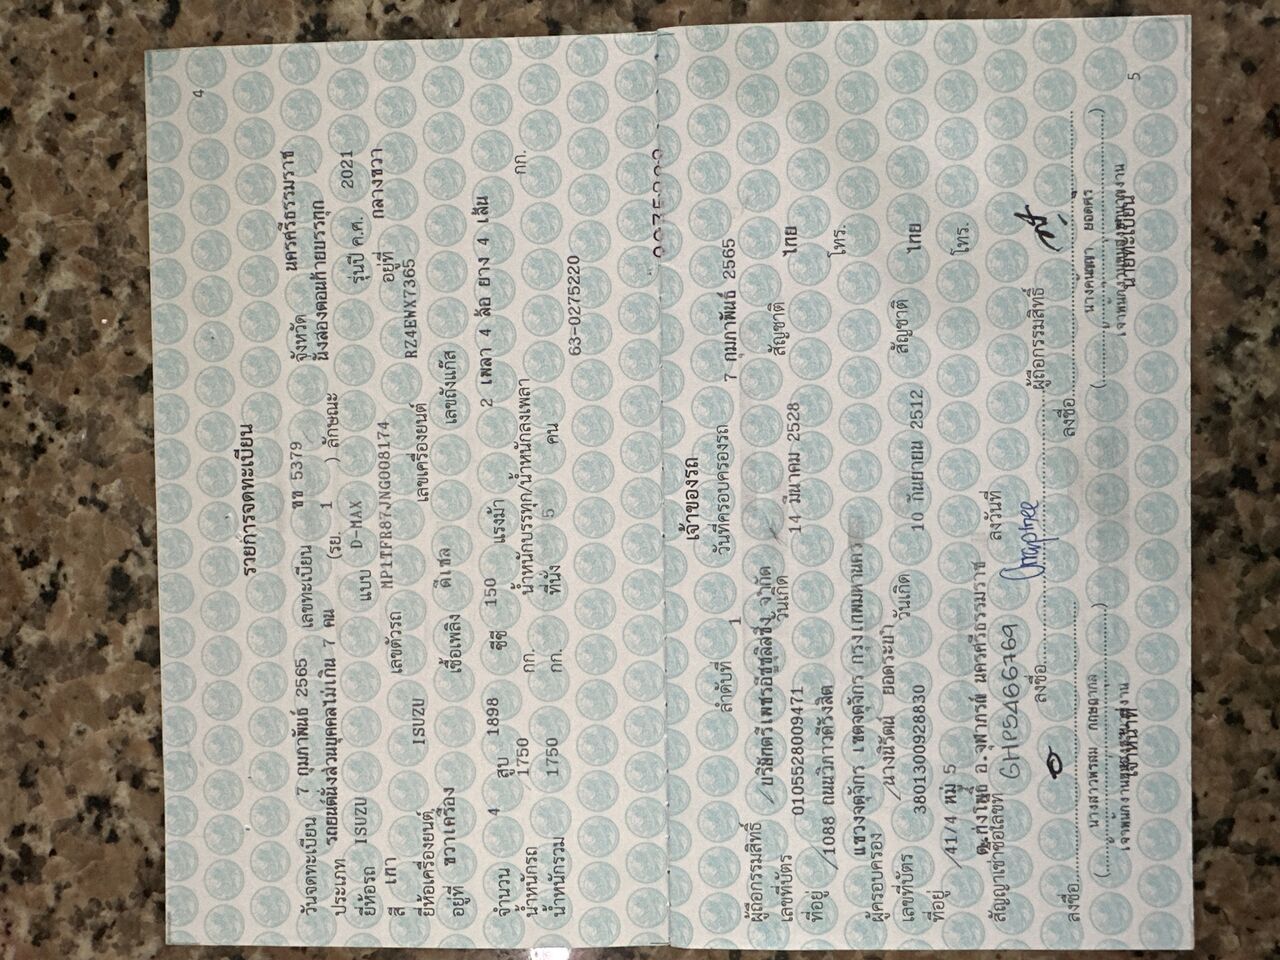 4
รายการจดทะเบียน
วันจดทะเบียน 7 กุมภาพันธ์ 2565 เลขทะเบียน ขข 5379 จังหวัด นครศรีธรรมราช
ประเภท รถยนต์นั่งส่วนบุคคลไม่เกิน 7 คน (รย. 1 ) ลักษณะ นั่งสองตอนท้ายบรรทุก
ยี่ห้อรถ ISUZU แบบ D-MAX รุ่นปี ค.ศ. 2021
สี เทา เลขตัวรถ MP1TFR87JNG008174 อยู่ที่ กลางขวา
ยี่ห้อเครื่องยนต์ ISUZU เลขเครื่องยนต์ RZ4EWX7365
อยู่ที่ ขวาเครื่อง เชื้อเพลิง ดีเซล เลขถังแก๊ส
จำนวน 4 สูบ 1898 ซีซี 150 แรงม้า 2 เพลา 4 ล้อ ยาง 4 เส้น
น้ำหนักรถ 1750 กก. น้ำหนักบรรทุก/น้ำหนักลงเพลา กก.
น้ำหนักรวม 1750 กก. ที่นั่ง 5 คน
63-0275220
เจ้าของรถ
ลำดับที่ 1 วันที่ครอบครองรถ 7 กุมภาพันธ์ 2565
ผู้ถือกรรมสิทธิ์ บริษัทตรีเพชรอีซูซุลิสซิ่ง จำกัด
เลขที่บัตร 0105528009471 วันเกิด 14 มีนาคม 2528 สัญชาติ ไทย
ที่อยู่ 1088 ถนนวิภาวดีรังสิต โทร.
แขวงจตุจักร เขตจตุจักร กรุงเทพมหานคร
ผู้ครอบครอง นางนิรัตน์
เลขที่บัตร 3801300928830 วันเกิด 10 กันยายน 2512 สัญชาติ ไทย
ที่อยู่ 41/4 หมู่ 5 โทร.
อ.จุฬาภรณ์ นครศรีธรรมราช
สัญญาเช่าซื้อเลขที่ GHP5A666769 ลงวันที่
ลงชื่อ ผู้ถือกรรมสิทธิ์
ลงชื่อ ลงชื่อ
นางสาวพรสม
เจ้าหน้าที่ นายทะเบียน
5